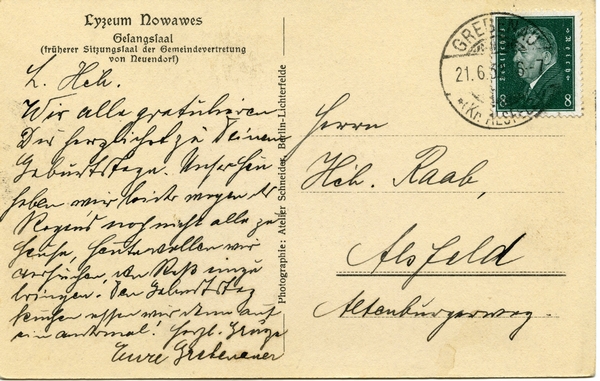 Lyzeum Nowawes
Gesangssaal
(früherer Sitzungssaal der Gemeindevertretung
von Neuendorf)
L. Hch.
Wir alle gratulieren
Dir herzlichst zu Deinem
Geburtstage. Unser Heu
haben wir leider wegen des
Regens noch nicht alle zu
Hause, heute wollen wir
versuchen, den Rest einzu
bringen. Den Geburtstag
kuchen essen wir dann auf
ein andermal! Herzl. Grüße
Eure Grebenauer
Photographie: Atelier Schneider, Berlin-Lichterfelde
GREBENAU
21.6.3
(Kr. ALSFELD)
Deutsches Reich
8 8
Herrn
Hch. Raab,
Alsfeld
Altenburgerweg.